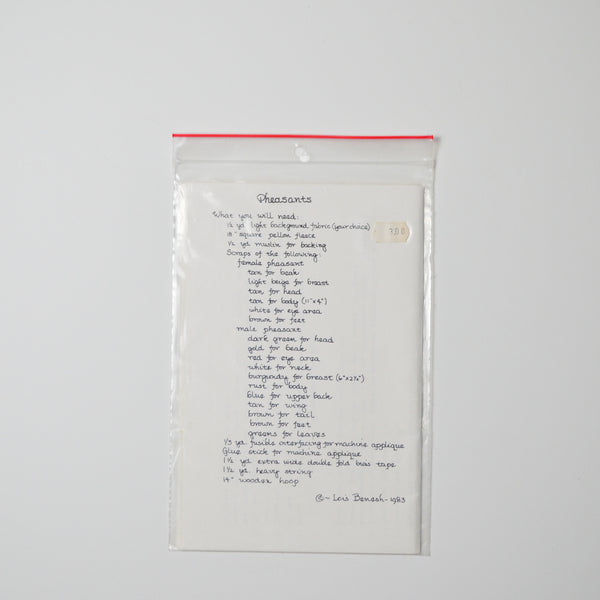 Pheasants
What you will need:
½ yd. light background fabric (your choice)
18" square pellon fleece
½ yd. muslin for backing
Scraps of the following:
female pheasant
tan for beak
light beige for breast
tan for head
tan for body (11"x4")
white for eye area
brown for feet
male pheasant
dark green for head
gold for beak
red for eye area
white for neck
burgundy for breast (6"x2½")
rust for body
blue for upper back
tan for wing
brown for tail
brown for feet
greens for leaves
⅓ yd. fusible interfacing for machine applique
Glue stick for machine applique
1½ yd. extra wide double fold bias tape
1½ yd. heavy string
14" wooden hoop
© ~ Lois Benesh - 1983
3.00